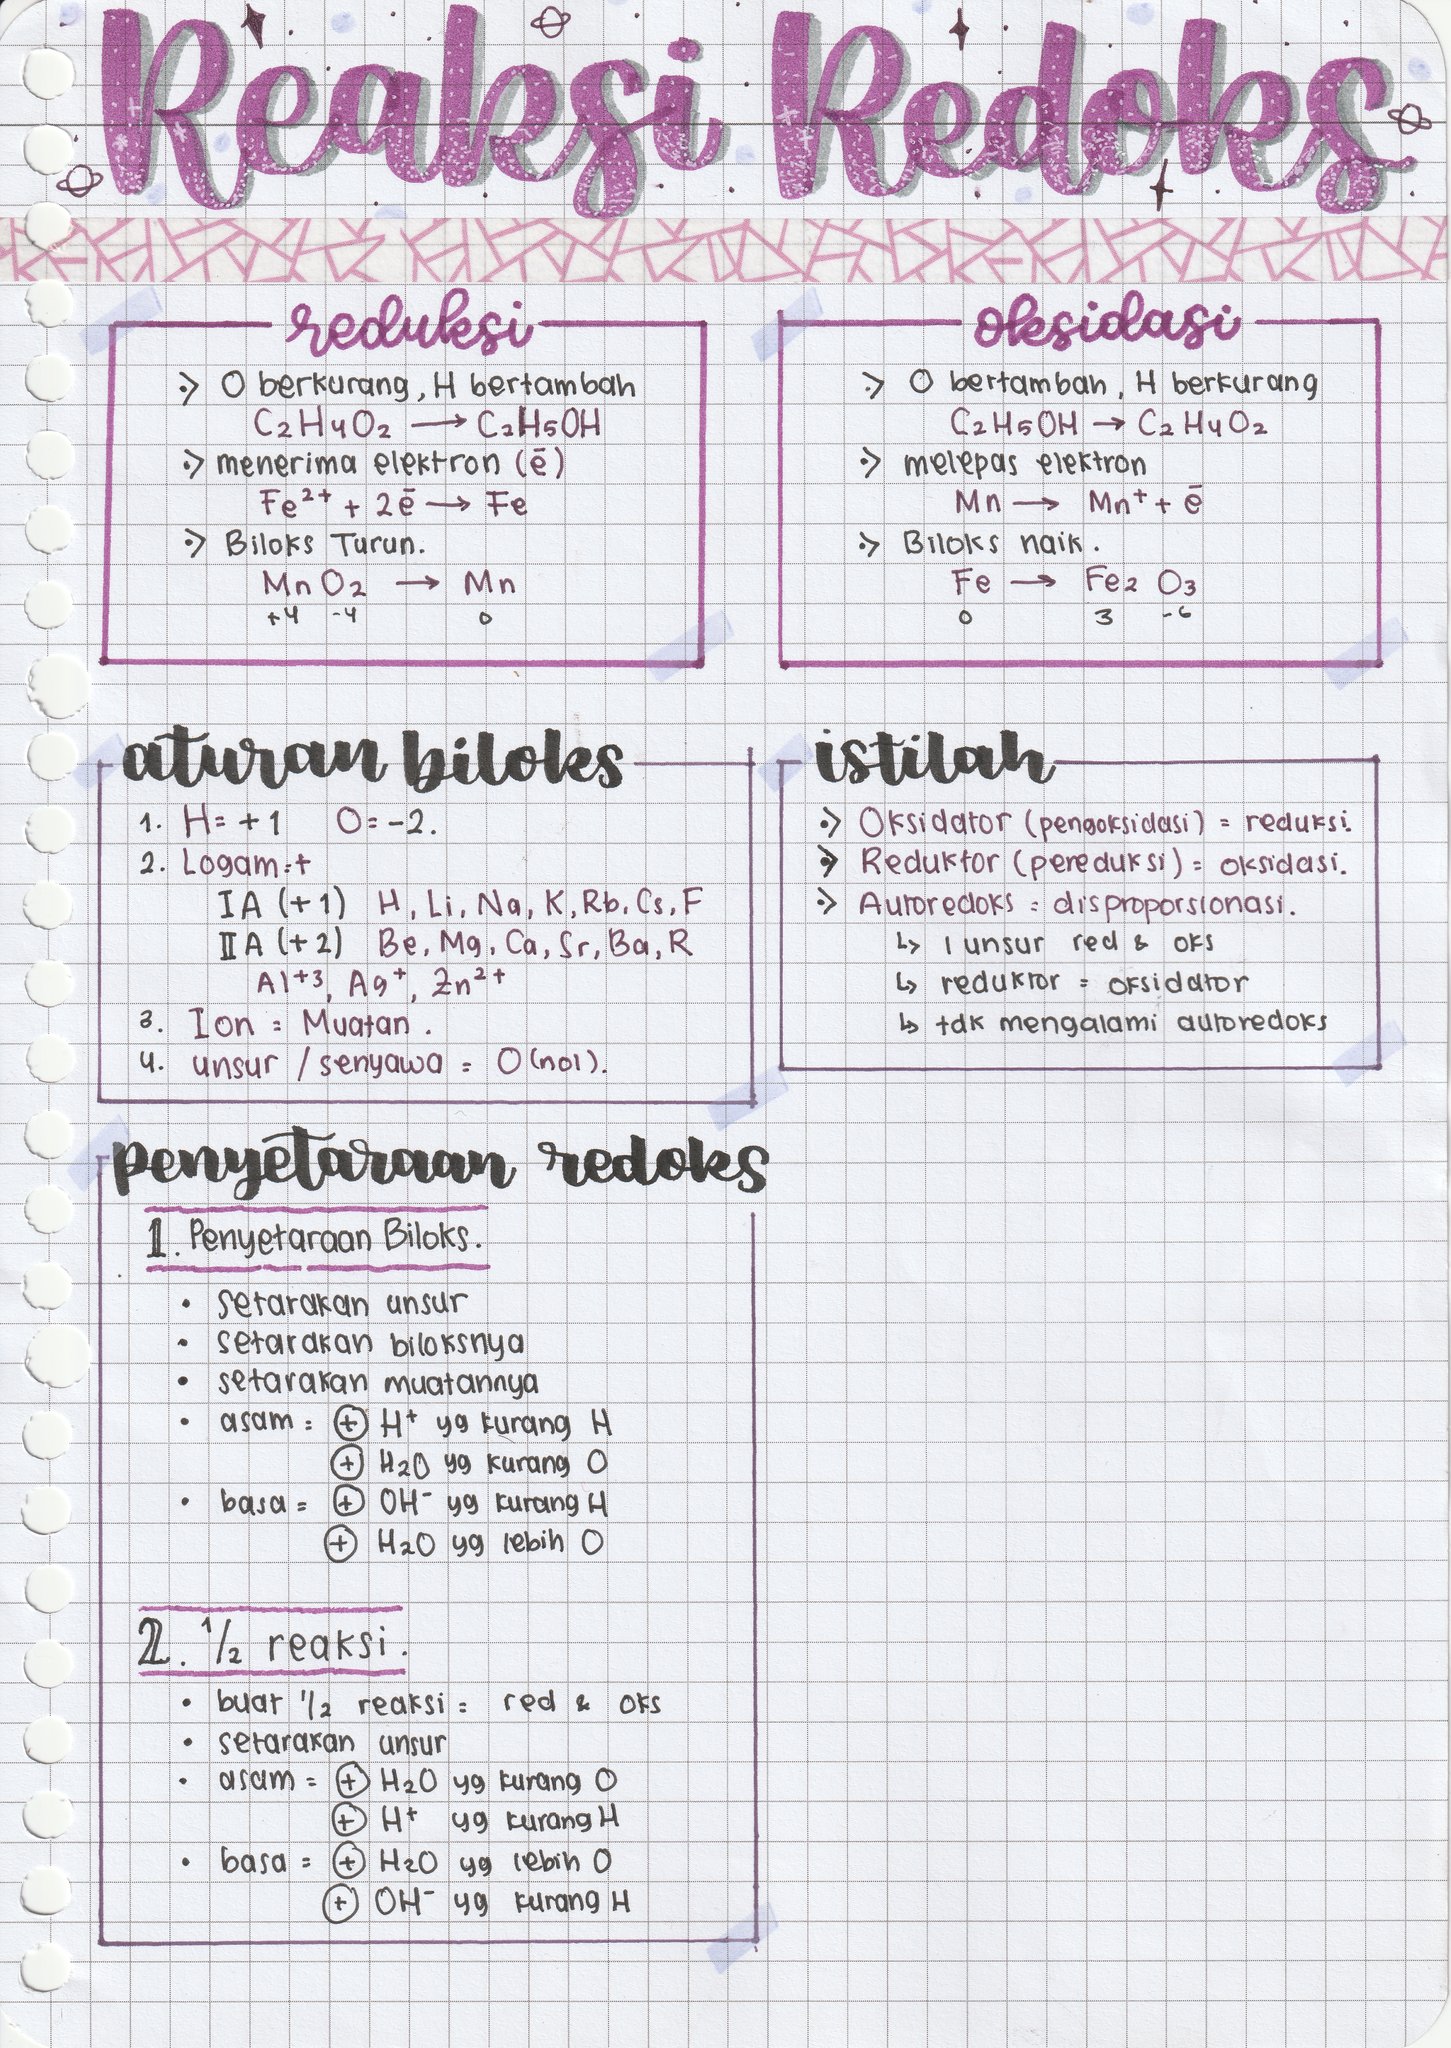 Reaksi Redoks
reduksi
O berkurang, H bertambah
C₂H₄O₂ → C₂H₅OH
menerima elektron (ē)
Fe²⁺ + 2ē → Fe
Biloks Turun.
MnO₂ → Mn
+4 -4 0
oksidasi
O bertambah, H berkurang
C₂H₅OH → C₂H₄O₂
melepas elektron
Mn → Mn⁺ + ē
Biloks naik.
Fe → Fe₂O₃
0 3 -6
aturan biloks
1. H = +1 O = -2.
2. Logam = +
IA (+1) H, Li, Na, K, Rb, Cs, F
IIA (+2) Be, Mg, Ca, Sr, Ba, R
Al⁺³, Ag⁺, Zn²⁺
3. Ion = Muatan.
4. unsur / senyawa = O (nol).
istilah
Oksidator (pengoksidasi) = reduksi.
Reduktor (pereduksi) = oksidasi.
Autoredoks = disproporsionasi.
↳ 1 unsur red & oks
↳ reduktor = oksidator
↳ tdk mengalami autoredoks
penyetaraan redoks
1. Penyetaraan Biloks.
• setarakan unsur
• setarakan biloksnya
• setarakan muatannya
• asam = ⊕ H⁺ yg kurang H
⊕ H₂O yg kurang O
• basa = ⊕ OH⁻ yg kurang H
⊕ H₂O yg lebih O
2. ½ reaksi.
• buat ½ reaksi = red & oks
• setarakan unsur
• asam = ⊕ H₂O yg kurang O
⊕ H⁺ yg kurang H
• basa = ⊕ H₂O yg lebih O
⊕ OH⁻ yg kurang H